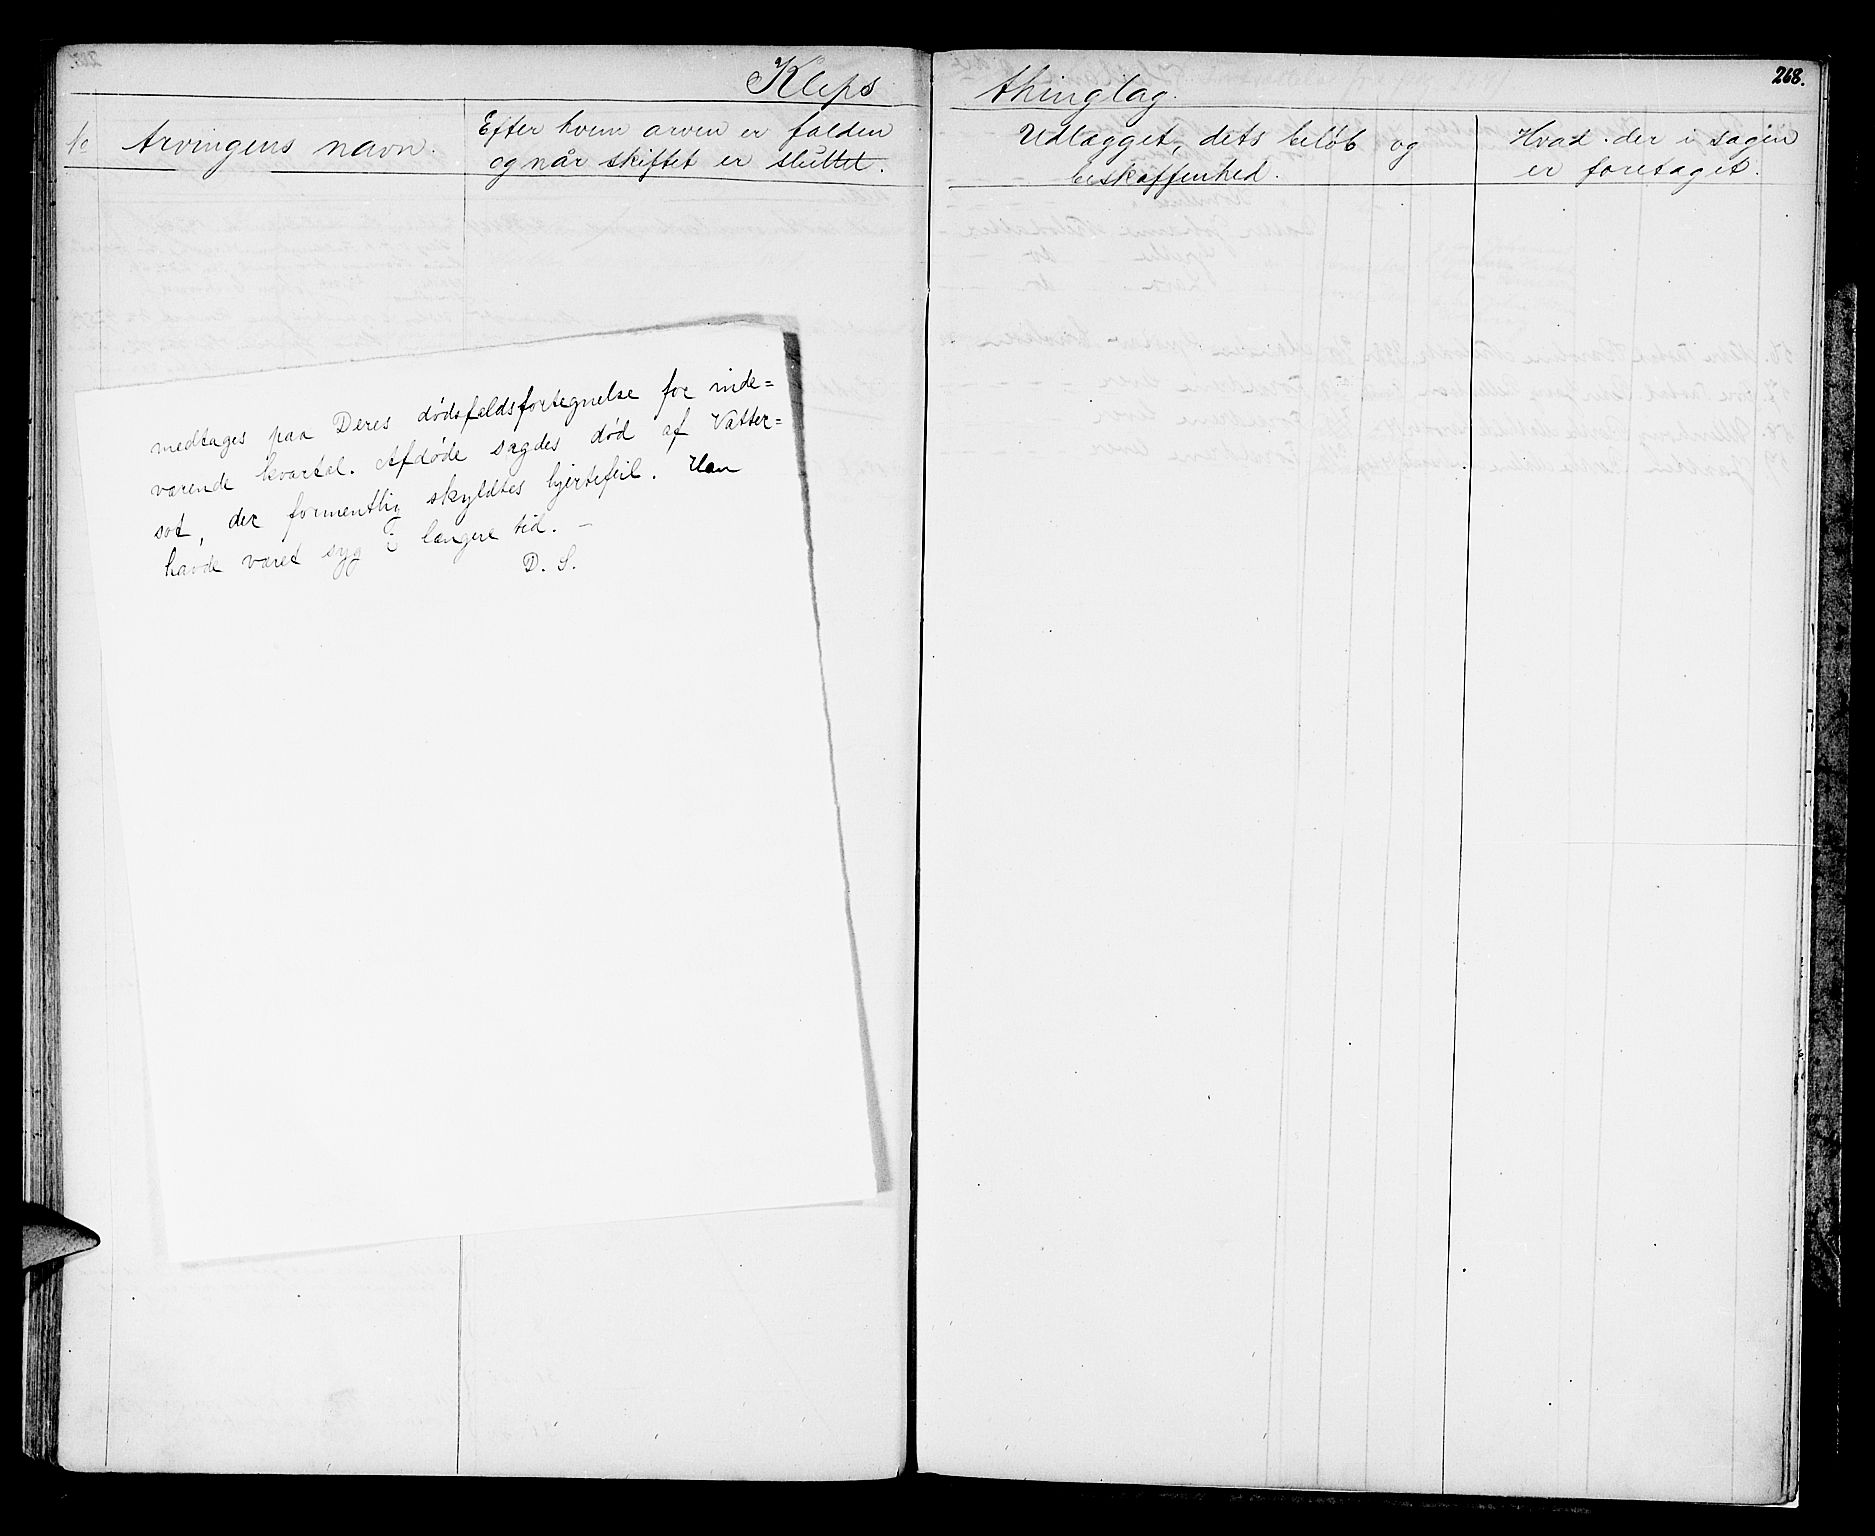 Kleps
thinglag.
268.
No
Arvingens navn.
Efter hvem arven er falden
og når skiftet er sluttet.
Udlægget, dets beløb og
beskaffenhed.
Hvad der i sagen
er foretaget.
medtages paa Deres dødsfaldsfortegnelse for inde=
værende kvartal. Afdøde sagdes død af Vatter=
sot, der formentlig skyldtes hjertefeil. Han
havde været syg i længere tid. –
D. S.